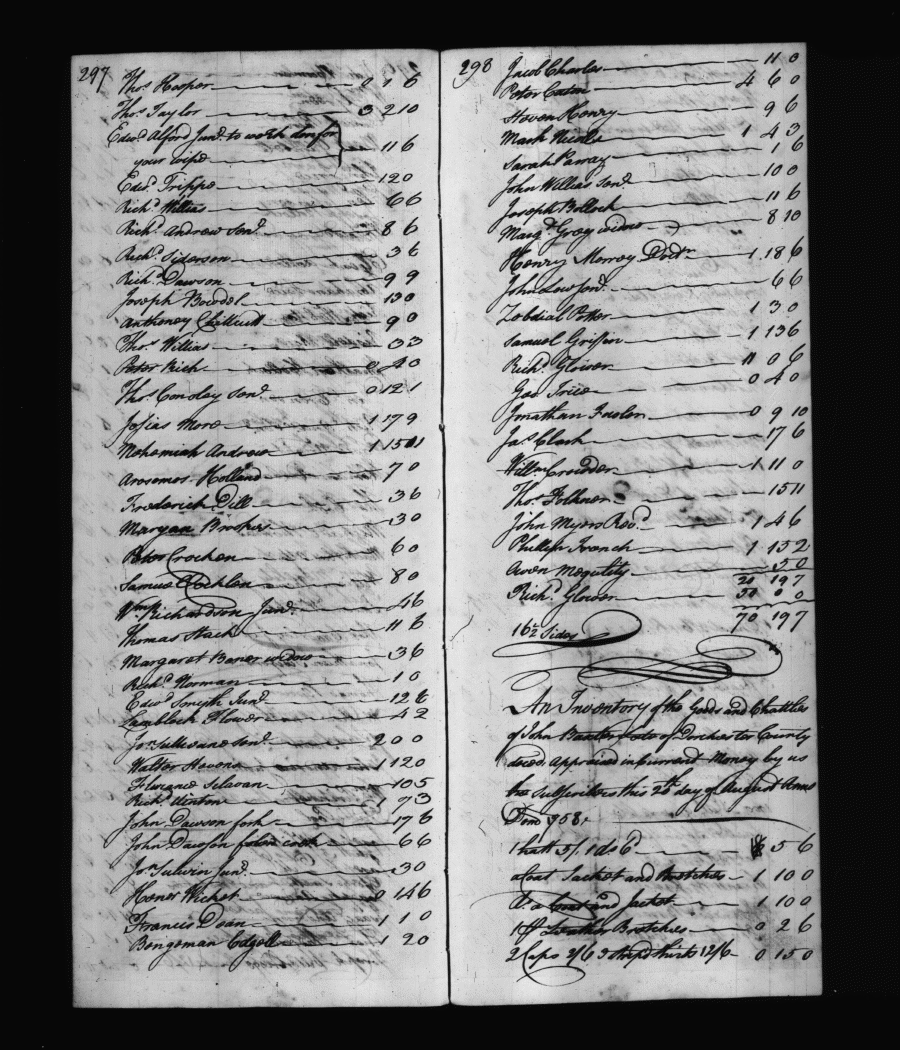 297
Thos. Hooper 0 1 6
Thos. Taylor 3 2 10
Edwd. Alford Junr. to work don for
your wife 11 6
Edwd. Trippe 12 0
Richd. Willias 6 6
Richd. Andrew Senr. 8 6
Richd. Siderson 3 6
Richd. Dawson 9 9
Joseph Bowdel 13 0
Anthoney 9 0
Thos. Willias 3 3
Peter Rich 0 4 0
Thos. Conolay Senr. 0 12 1
Josias More 1 17 9
Nehemiah Andrew 1 15 1
Holland 7 0
Frederick Dill 3 6
Maryan Brookes 3 0
Peter Crochen 6 0
Samuel 8 0
Wm. Richardson Junr. 4 6
Thomas Stack 11 6
Margaret widow 3 6
Richd. Norman 1 0
Edwd. Smyth Junr. 12 6
Flower 4 2
Jn. Sullivane Senr. 2 0 0
Walter Stevens 1 12 0
10 5
Richd. 1 7 3
John Dawson fork 17 6
John Dawson cock 6 6
Jn. Junr. 3 0
0 14 6
Francis Dean 1 1 0
Bengeman 1 2 0
298
Jacob Charles 11 0
Peter 4 6 0
Steven Henry 9 6
Mark Nicols 1 4 3
Sarah 1 6
John Willias Senr. 10 0
Joseph Bollock 11 6
Margt. Gray widow 8 10
Henry Morray Doctr. 1 18 6
John Low Junr. 6 6
Zebdial Potter 1 3 0
Samuel Griffin 1 13 6
Richd. Glover 11 0 6
Geo 0 4 0
Jonathan 0 9 10
Jas. Clark 17 6
Willm. Crowder 1 11 0
Thos. Folkner 15 11
John Myers Revd. 1 4 6
Phillip French 1 15 2
Owen 15 0
20 19 7
Richd. Glover 50 0 0
70 19 7
16½ Sides
An Inventory of the Goods and Chattles
of John Baxter Late of Dorchester County
deced. Appraised in Current Money by us
the Subscribers this 25th day of August Anno
Dom 1758
1 hatt 5/ 1 do 6d 5 6
a Coat Jacket and Bretches 1 10 0
Do. a Coat and Jacket 1 10 0
1 pr Leather Bretches 0 2 6
2 Caps 2/6 3 shirts 12/6 0 15 0